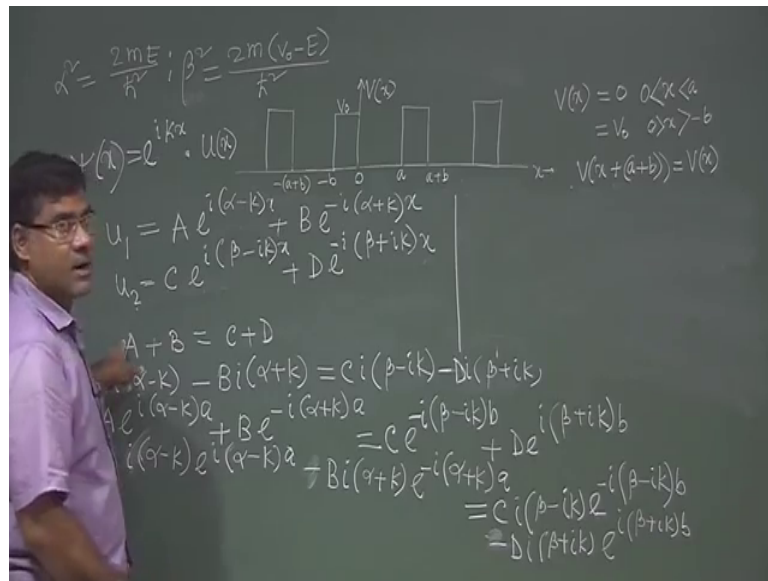 α² = 2mE/ħ² ; β² = 2m(V₀-E)/ħ²
ψ(x) = e^{ikx} · U(x)
V(x)
V₀
-(a+b) -b 0 a a+b x→
V(x) = 0 0<x<a
= V₀ 0>x>-b
V(x+(a+b)) = V(x)
u₁ = A e^{i(α-k)x} + B e^{-i(α+k)x}
u₂ = C e^{i(β-ik)x} + D e^{-i(β+ik)x}
A + B = C + D
(α-k) - Bi(α+k) = Ci(β-ik) - Di(β+ik)
A e^{i(α-k)a} + B e^{-i(α+k)a} = C e^{-i(β-ik)b} + D e^{i(β+ik)b}
i(α-k) e^{i(α-k)a} - Bi(α+k) e^{-i(α+k)a}
= Ci(β-ik) e^{-i(β-ik)b}
- Di(β+ik) e^{i(β+ik)b}